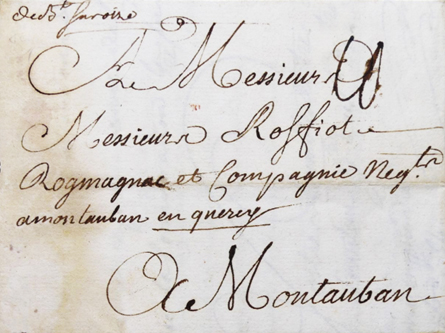 de St. Savoize
A Messieurs
Messieurs Roffiot
Rogmagnac et Compagnie Negts
a montauban en quercy
A Montauban